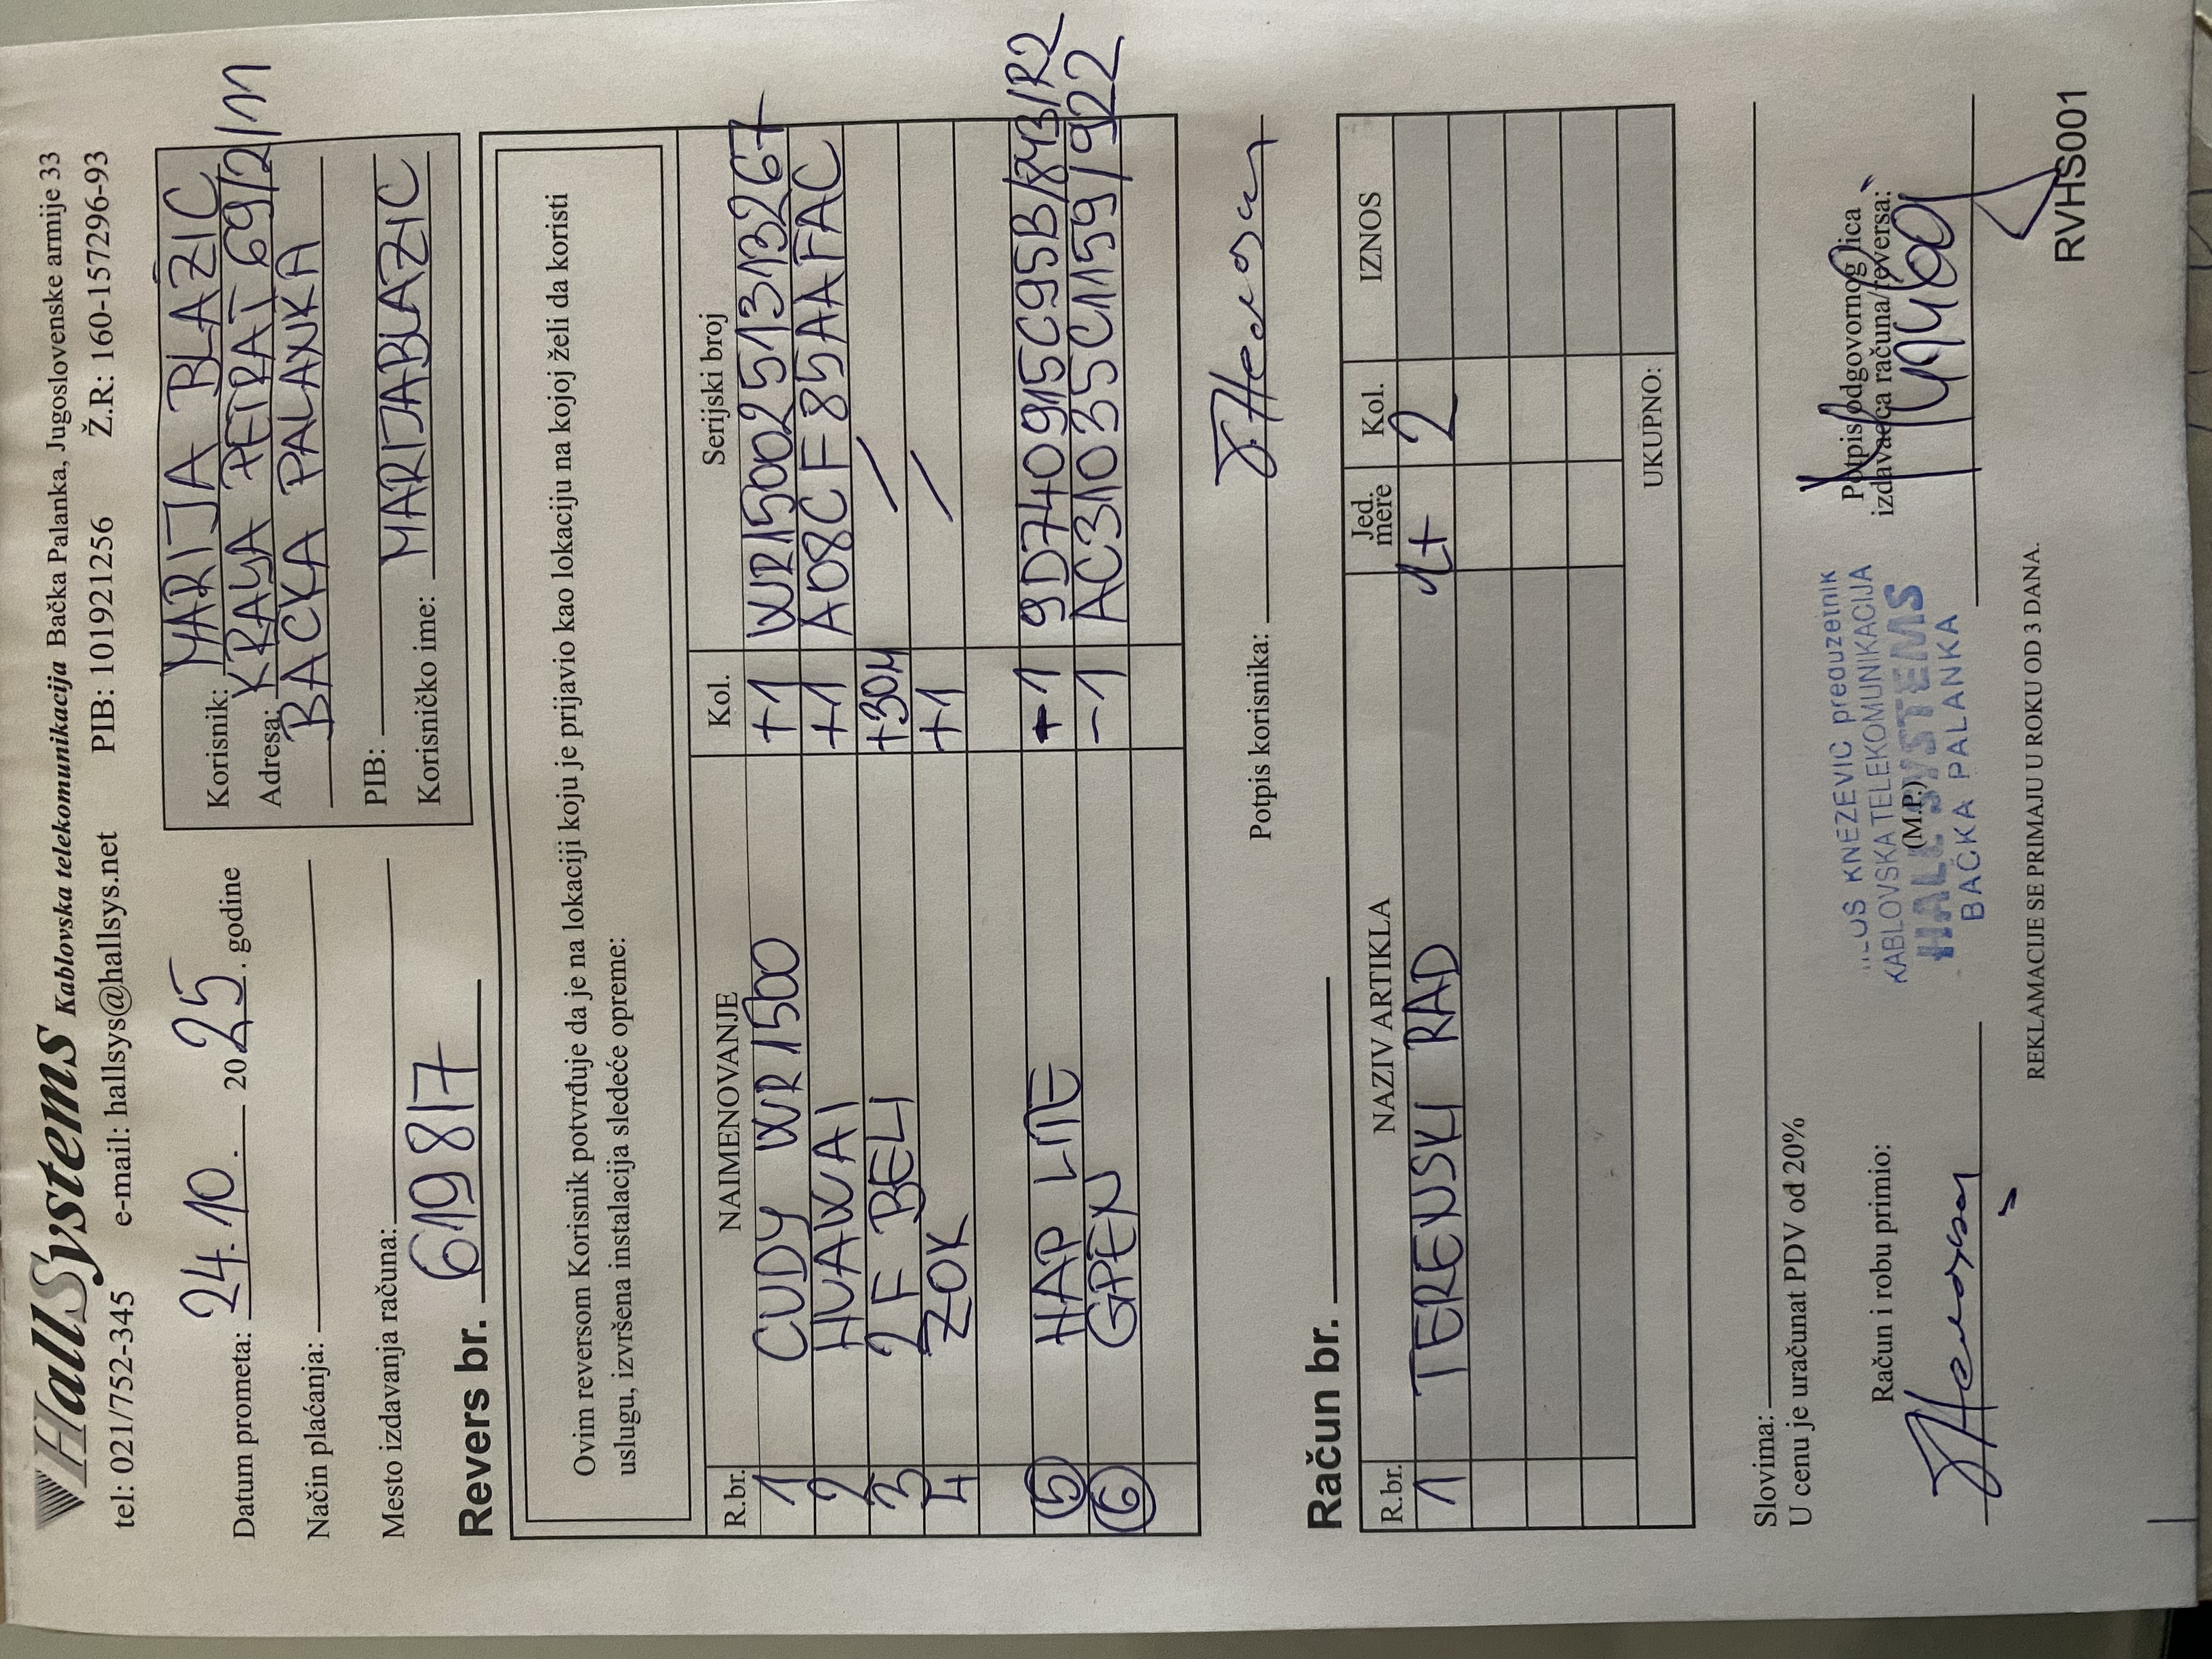 HallSystems Kablovska telekomunikacija Bačka Palanka, Jugoslovenske armije 33
tel: 021/752-345 e-mail: hallsys@hallsys.net PIB: 101921256 Ž.R: 160-157296-93
Datum prometa: 24.10. 2025. godine
Način plaćanja:
Mesto izdavanja računa:
Korisnik: MARIJA BLAŽIC
Adresa: KRALJA PETRA I 69/2/11
BACKA PALANKA
PIB:
Korisničko ime: MARIJABLAZIC
Revers br. 619817
Ovim reversom Korisnik potvrđuje da je na lokaciji koju je prijavio kao lokaciju na kojoj želi da koristi
uslugu, izvršena instalacija sledeće opreme:
R.br. NAIMENOVANJE Kol. Serijski broj
1 CUDY WR1500 +1 WR1500251313267
2 HUAWAI +1 A08CF85AAFAC
3 2F BELI +30M /
4 ZOK +1 /
5 HAP LITE +1 9D740915C95B/843/R2
6 GPEN -1 AC31035C1159/922
Potpis korisnika:
Račun br.
R.br. NAZIV ARTIKLA Jed. mere Kol. IZNOS
1 TERENSKI RAD 1+ 2
UKUPNO:
Slovima:
U cenu je uračunat PDV od 20%
Račun i robu primio:
KNEZEVIC preduzetnik
KABLOVSKA TELEKOMUNIKACIJA
HALL SYSTEMS
BAČKA PALANKA
(M.P.)
Potpis odgovornog lica
izdavaoca računa/reversa:
REKLAMACIJE SE PRIMAJU U ROKU OD 3 DANA.
RVHS001